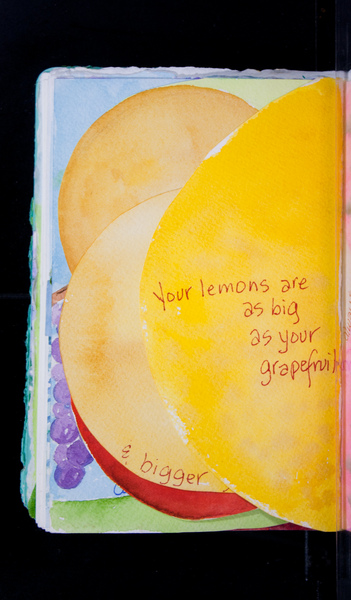 Your lemons are
as big
as your
grapefruit
& bigger